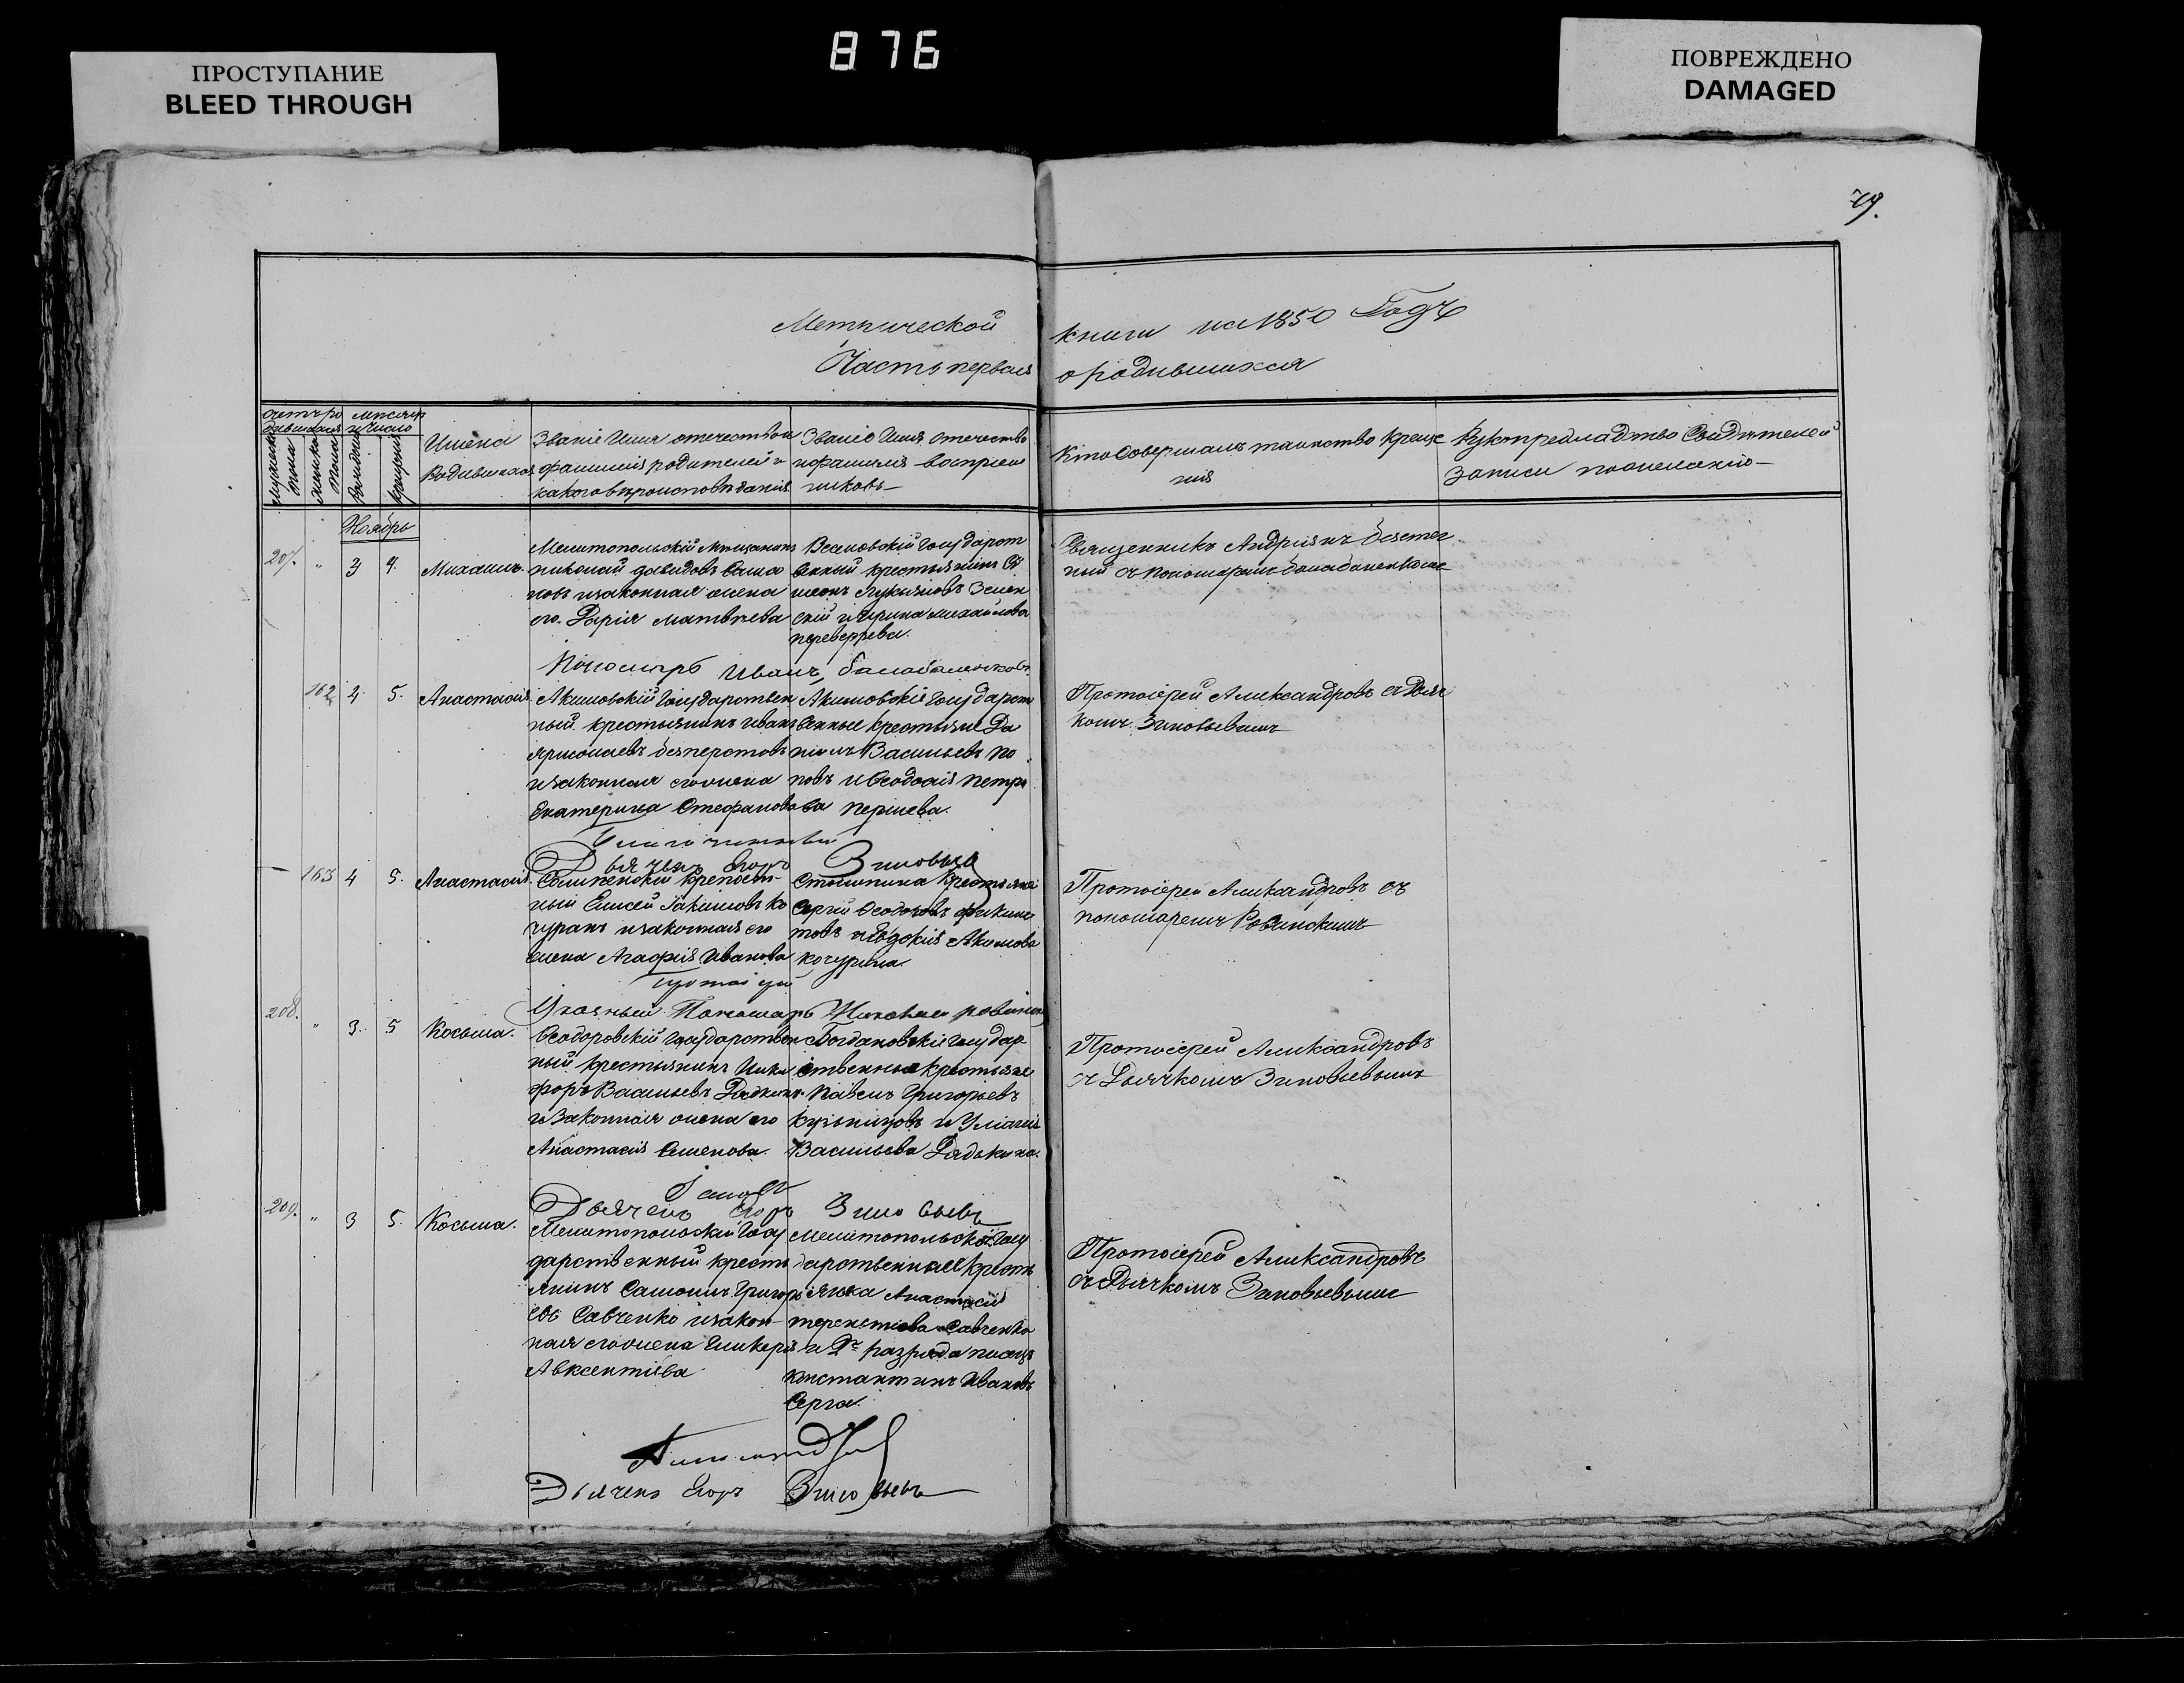 876
ПРОСТУПАНИЕ
BLEED THROUGH
ПОВРЕЖДЕНО
DAMAGED
79.
Метрической книги на 1850 Годъ
Часть первая о родившихся
мужеска пола
женска пола
рождения
крещения
Имена Родившихся
Званіе Имя отечество и
фамилія родителей и
какого вѣроисповѣданія
Званіе Имя Отечество
и фамилія воспріем
никовъ
Кто Совершалъ таинство Креще
нія
Рукоприкладство Свидѣтелей
записи по желанію
Ноябрь
207. " 3 4. Михаилъ.
Мелитопольскій Мѣщанинъ
николай давидовъ
новъ и законная жена
его Дарія матвѣева
Веселовскій Государст
венный крестьянинъ
меонъ Лукьяновъ
скій и Ирина михайлова
переверзева.
Священникъ Андріянъ
ный съ пономаремъ
Пономарь Иванъ
162 4 5. Анастасія
Акимовскій Государствен
ный крестьянинъ Иванъ
и законная его жена
Екатерина Стефанова
Акимовскіе Государст
венные крестьяне Да
ніилъ Васильевъ По
повъ и Ѳеодосія петро
ва
Протоіерей Александровъ съ Дьяч
комъ Зиновьевымъ
Дьячекъ Егоръ Зиновьевъ
163 4 5. Анастасія
ный Елисей Іакимовъ Ко
чуранъ и законная его
жена Агафія Иванова
Крестьяне
Сергій Ѳеодоровъ
товъ и Евдокія Акимова
кочурина.
Протоіерей Александровъ съ
пономаремъ Ровинскимъ
Пономарь
208. " 3. 5 Косьма.
Ѳеодоровскій Государствен
ный крестьянинъ Ники
форъ Васильевъ
и Законная жена его
Анастасія Семенова.
Богдановскіе Государ
ственные крестьяне
Павелъ Григорьевъ
Кузьницовъ и
Васильева Дядькина.
Протоіерей Александровъ
съ Дьячкомъ Зиновьевымъ
Дьячекъ Егоръ Зиновьевъ
209. " 3 5. Косьма.
Мелитопольскій Госу
дарственный кресть
янинъ Самоилъ Григорь
евъ Савченко и закон
ная его жена Гликерія
Авксентіева
Мелитопольская Госу
дарственная кресть
янка Анастасія
терентіева Савченкова
и 2го разряда писецъ
константинъ Ивановъ
Серга.
Протоіерей Александровъ
съ Дьячкомъ Зиновьевымъ
Дьячекъ Егоръ Зиновьевъ